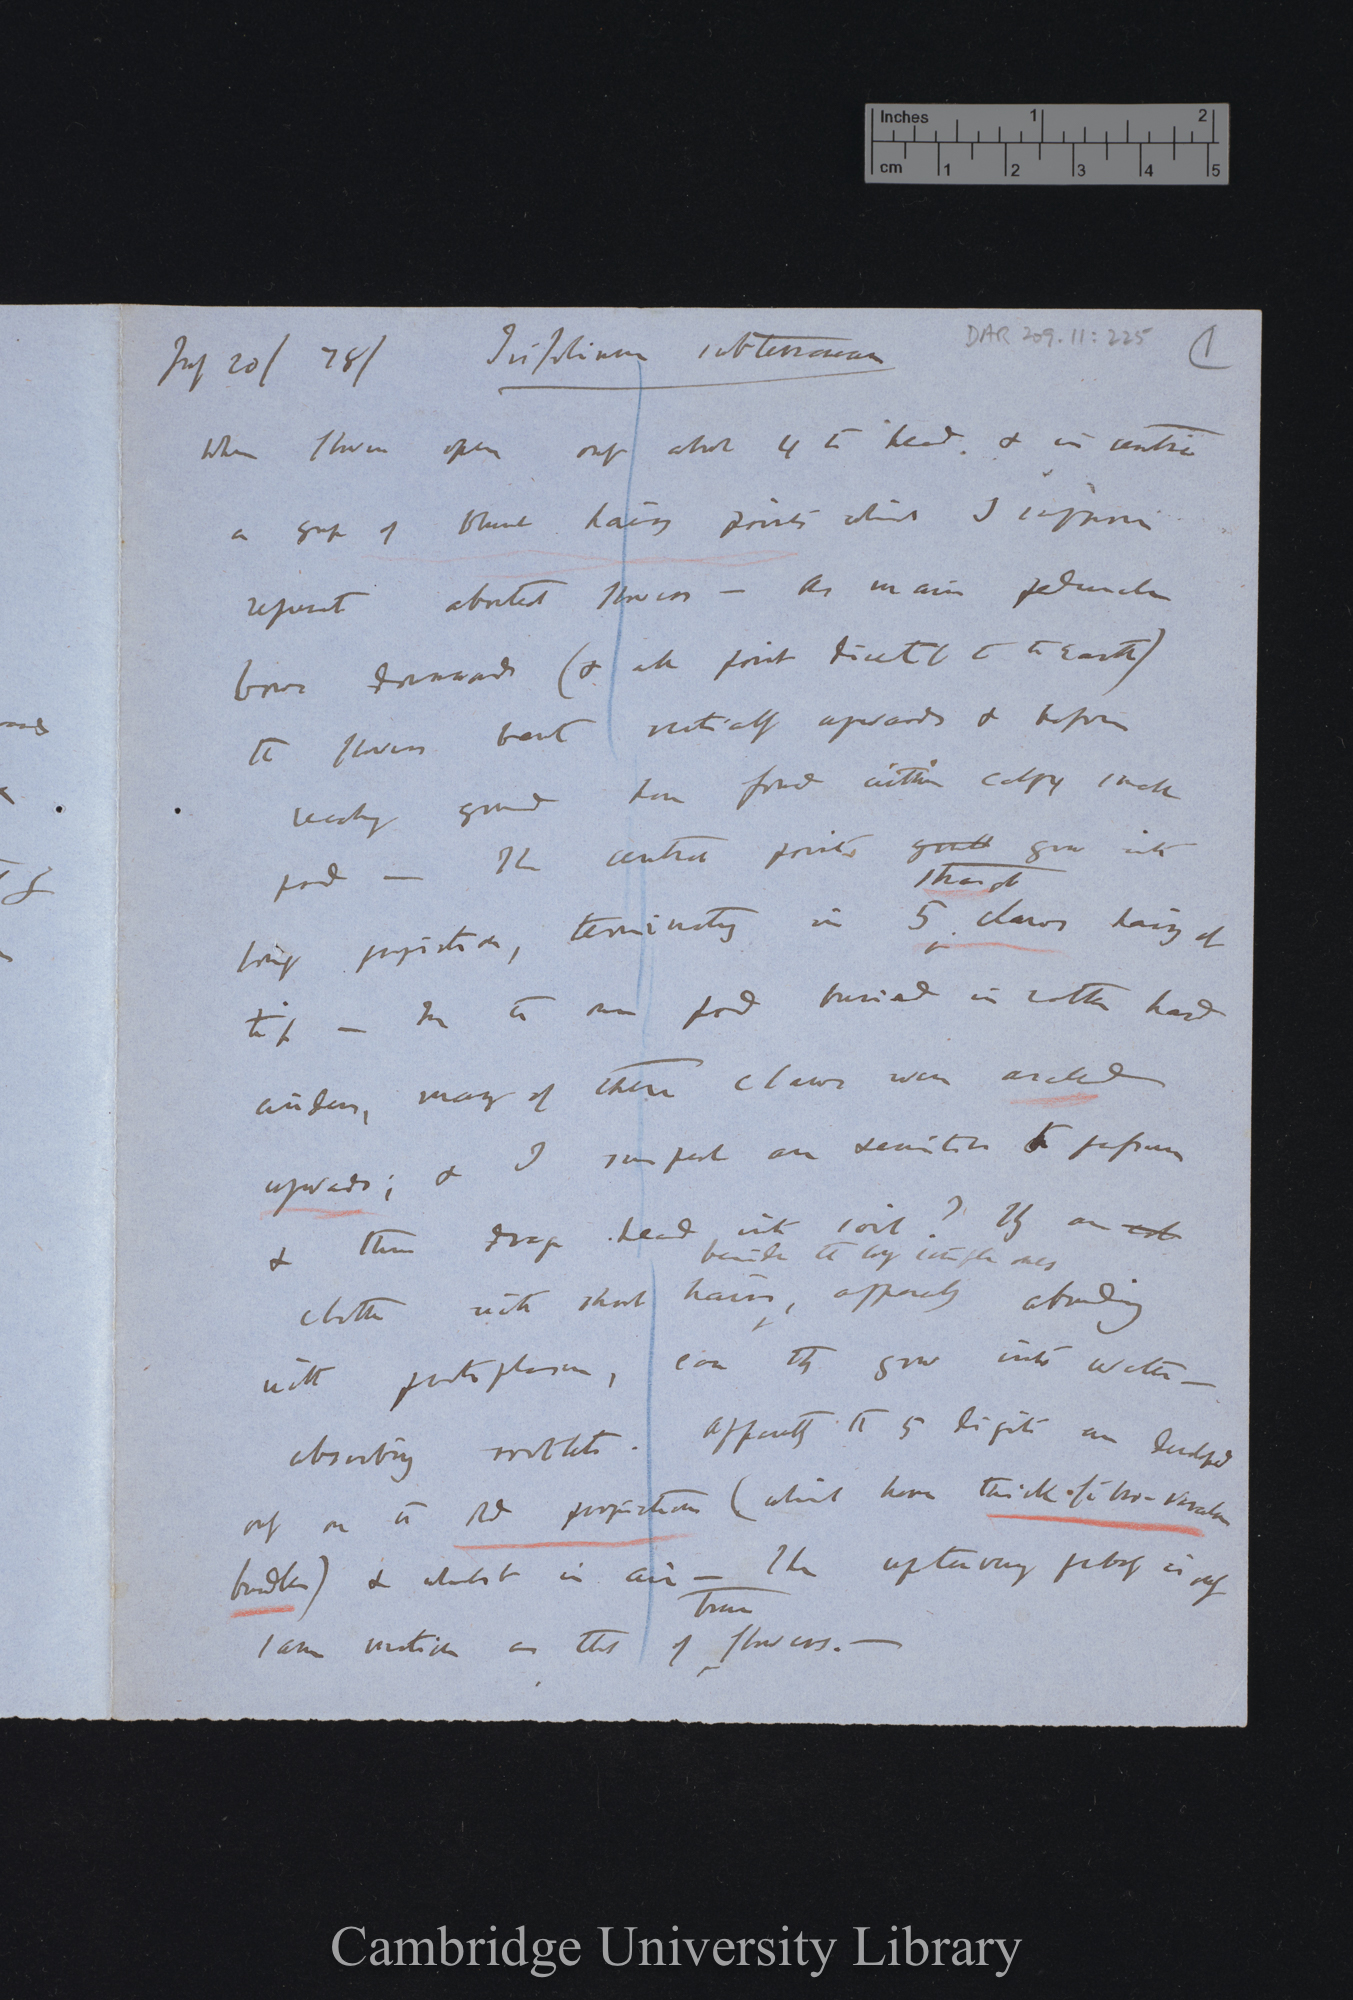 Inches 1 2
cm 1 2 3 4 5
DAR 209.11:225 (1
July 20/ 78/ Trifolium subterraneum
When flowers open only about 4 to head. & in centre
a group of blunt hairy points which I suppose
represent aborted flowers — As main peduncle
bows downwards (& all point directly to the Earth)
the flowers bent vertically upwards & before
reaching ground have found within calyx small
pod — The central points grow into
long projection, terminating in 5 claws hairy at
straight
tip — In the one pod buried in rather hard
cinders, many of these claws were arched
upwards; & I suspect are sensitive to pressure
& thus drag head into soil? They are
beside the long single ones
clothed with short hairs, apparently abounding
with protoplasm, can they grow into water-
absorbing rootlets. Apparently the 5 digits are developed
only on the old projections (which have thick-fibro-vascular
bundles) & whilst in air — The upturning probably is only
same motion as that of flowers. —
true
Cambridge University Library